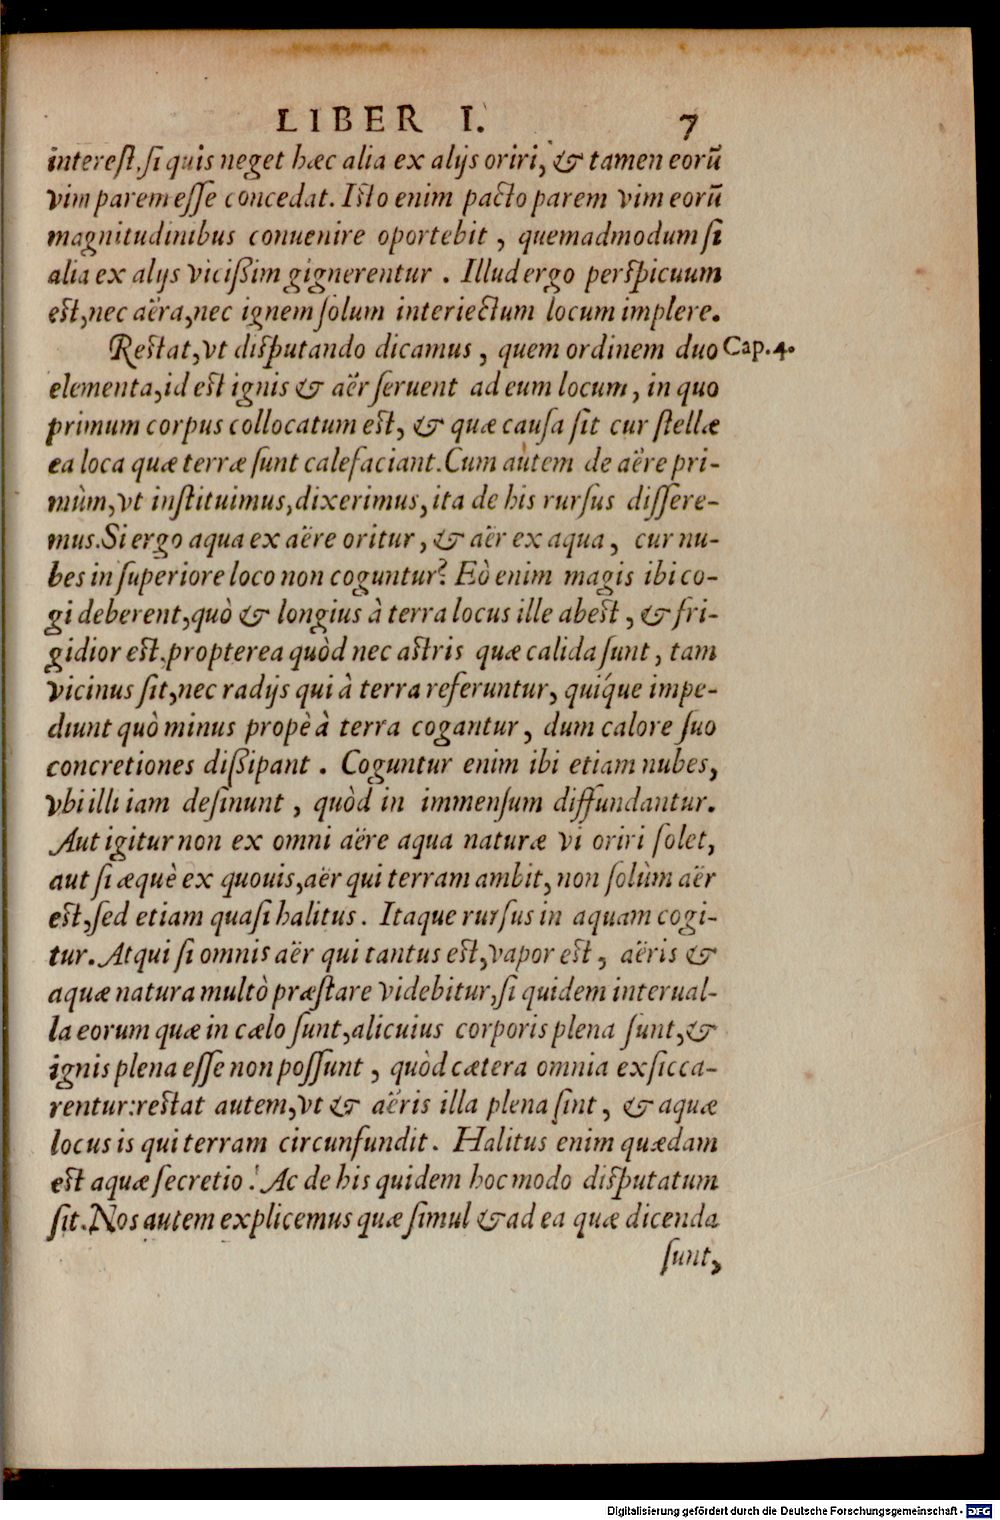 LIBER I. 7
interest, si quis neget hæc alia ex alijs oriri, & tamen eorũ
vim parem esse concedat. Isto enim pacto parem vim eorũ
magnitudinibus conuenire oportebit, quemadmodum si
alia ex alijs vicißim gignerentur. Illud ergo perspicuum
est, nec aëra, nec ignem solum interiectum locum implere.
Restat, vt disputando dicamus, quem ordinem duo Cap. 4.
elementa, id est ignis & aër seruent ad eum locum, in quo
primum corpus collocatum est, & quæ causa sit cur stellæ
ea loca quæ terræ sunt calefaciant. Cum autem de aëre pri-
mùm, vt instituimus, dixerimus, ita de his rursus dissere-
mus. Si ergo aqua ex aëre oritur, & aër ex aqua, cur nu-
bes in superiore loco non coguntur? Eò enim magis ibi co-
gi deberent, quò & longius à terra locus ille abest, & fri-
gidior est, propterea quòd nec astris quæ calida sunt, tam
vicinus sit, nec radijs qui à terra referuntur, quíque impe-
diunt quò minus propè à terra cogantur, dum calore suo
concretiones dißipant. Coguntur enim ibi etiam nubes,
vbi illi iam desinunt, quòd in immensum diffundantur.
Aut igitur non ex omni aëre aqua naturæ vi oriri solet,
aut si æquè ex quouis, aër qui terram ambit, non solùm aër
est, sed etiam quasi halitus. Itaque rursus in aquam cogi-
tur. Atqui si omnis aër qui tantus est, vapor est, aëris &
aquæ natura multò præstare videbitur, si quidem interual-
la eorum quæ in cælo sunt, alicuius corporis plena sunt, &
ignis plena esse non possunt, quòd cætera omnia exsicca-
rentur: restat autem, vt & aëris illa plena sint, & aquæ
locus is qui terram circunfundit. Halitus enim quædam
est aquæ secretio. Ac de his quidem hoc modo disputatum
sit. Nos autem explicemus quæ simul & ad ea quæ dicenda
sunt,
Digitalisierung gefördert durch die Deutsche Forschungsgemeinschaft - DFG